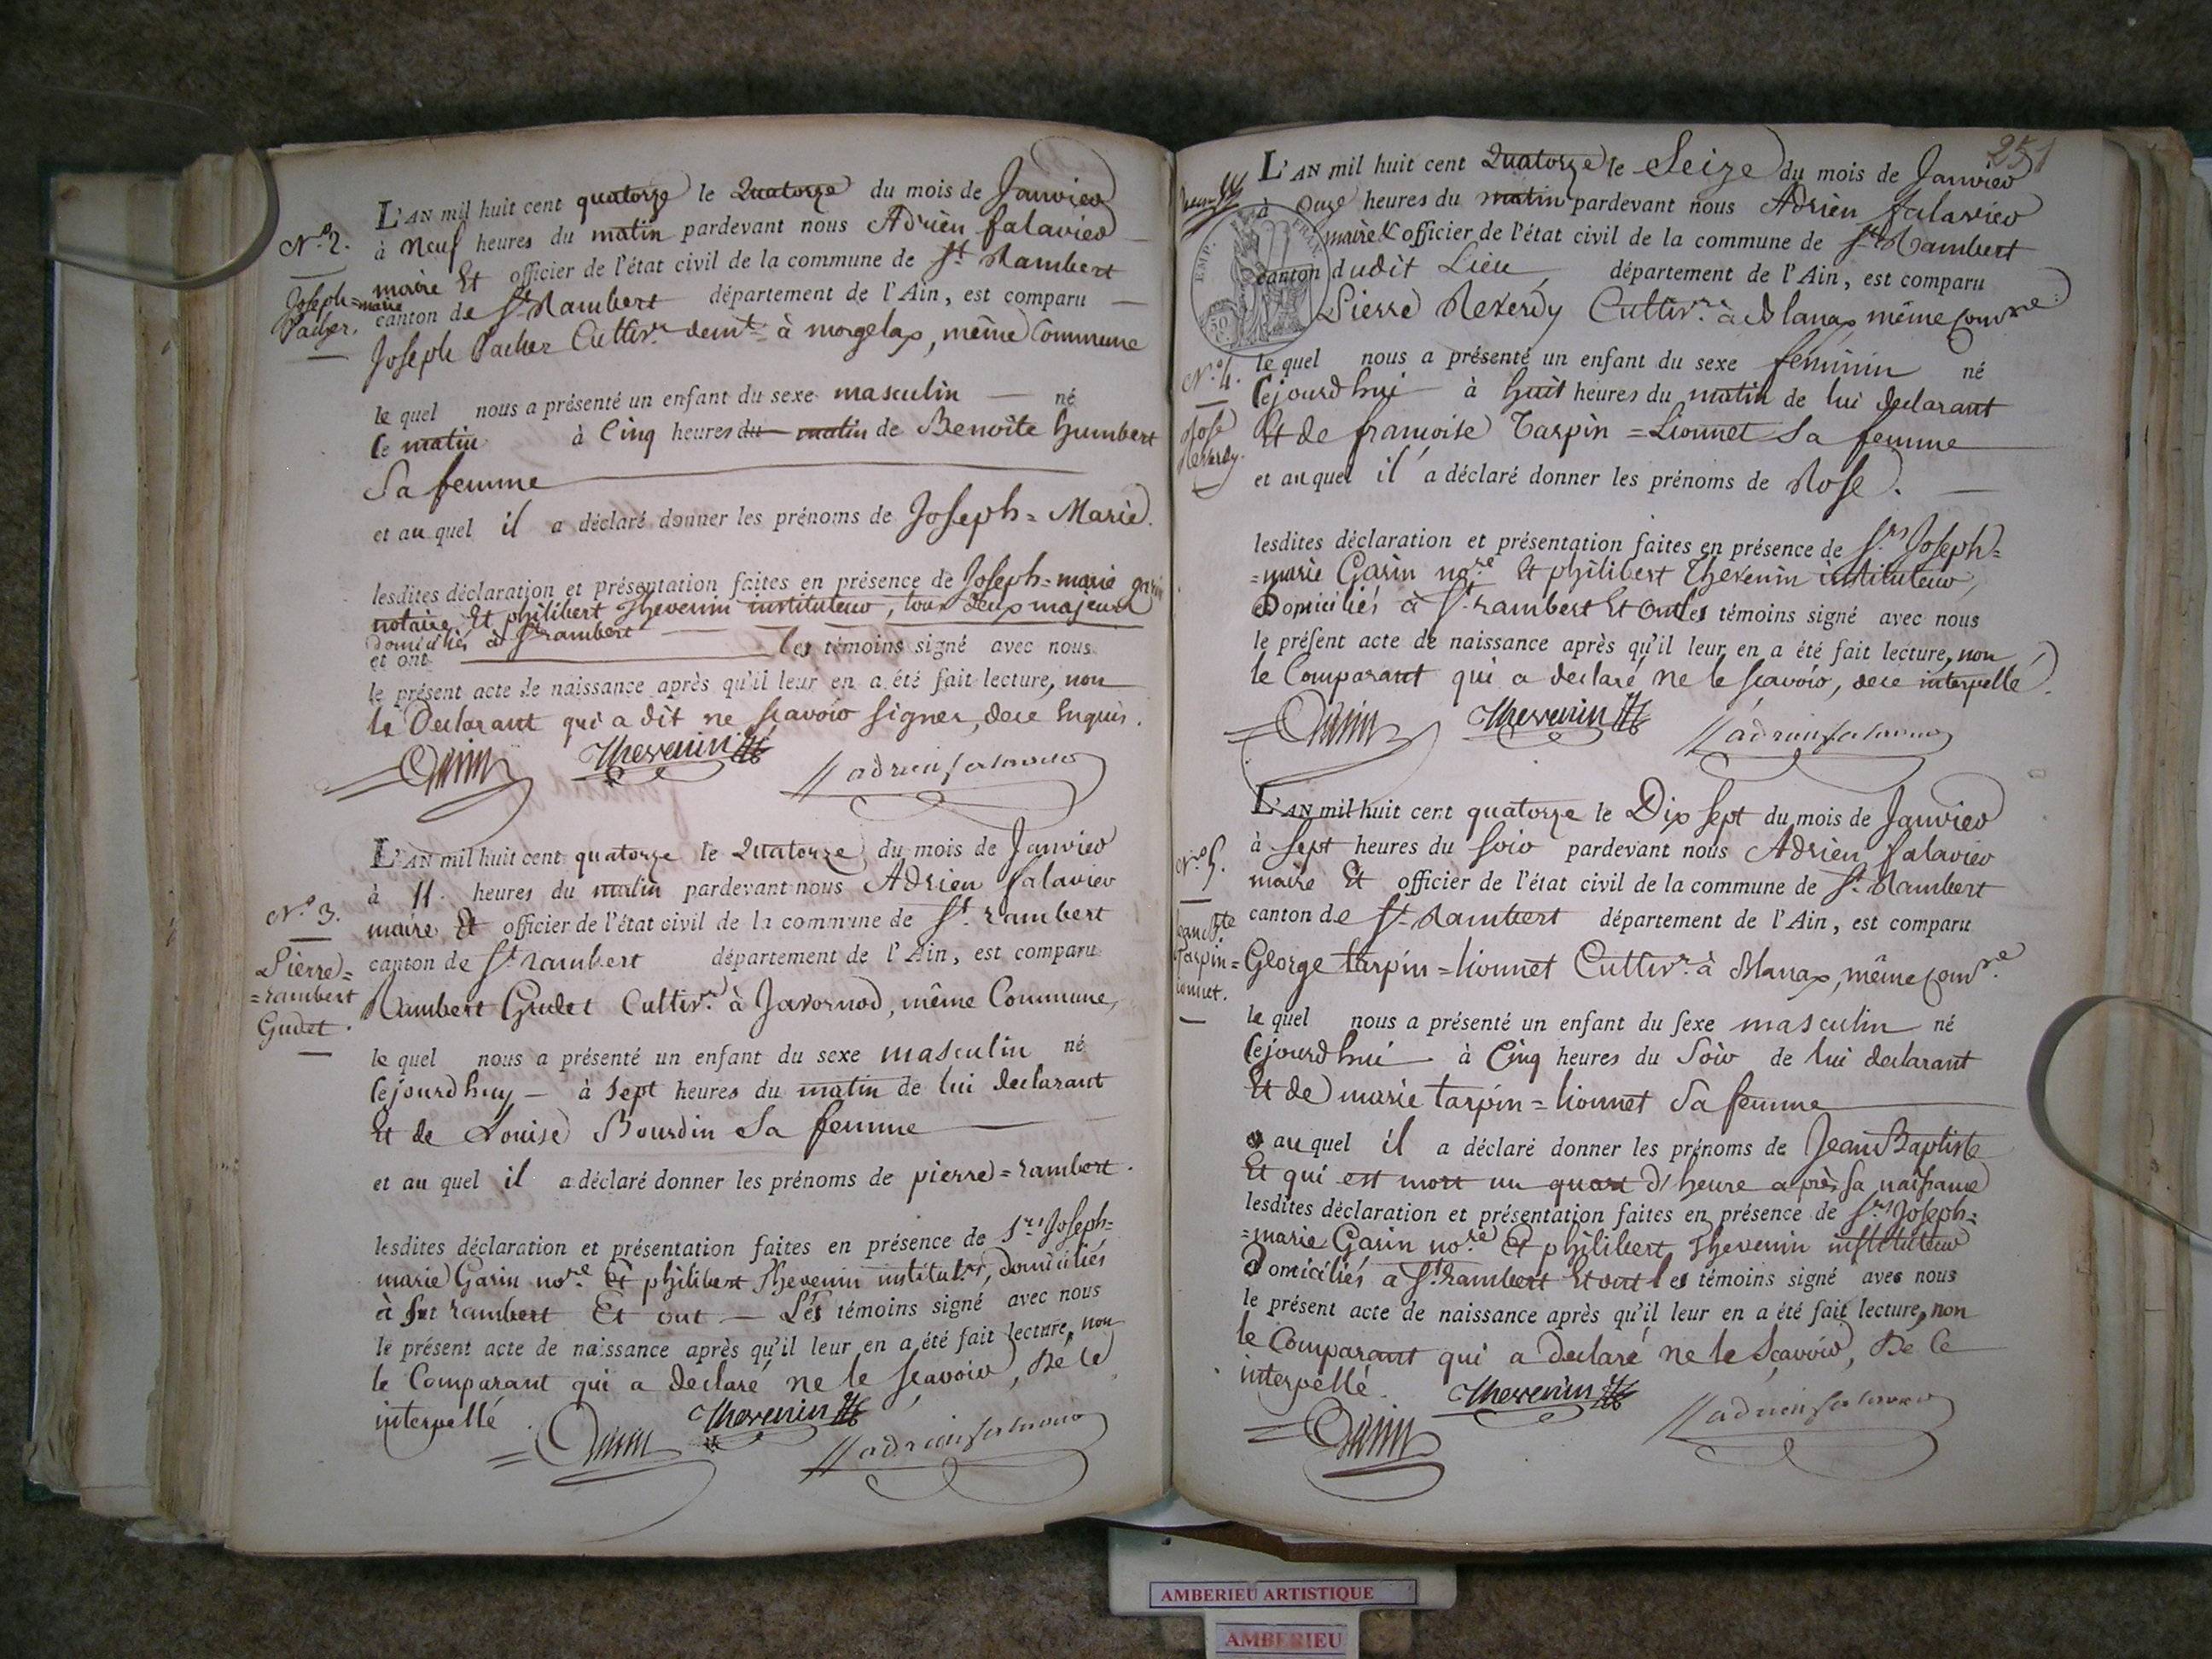 N.º 2.
Joseph=marie
Pacher.
L'AN mil huit cent quatorze le Quatorze du mois de Janvier
à Neuf heures du matin pardevant nous Adrien falavier
maire Et officier de l'état civil de la commune de St Rambert
canton de St Rambert département de l'Ain, est comparu
Joseph Pacher Cultivr. demt. à morgelax, même Commune
le quel nous a présenté un enfant du sexe masculin né
Ce matin à Cinq heures du matin de Benoite humbert
Sa femme
et au quel il a déclaré donner les prénoms de Joseph=Marie.
lesdites déclaration et présentation faites en présence de Joseph=marie garin
notaire Et philibert Thevenin instituteur, tous deux majeurs
domiciliés à St rambert
et ont les témoins signé avec nous
le présent acte de naissance après qu'il leur en a été fait lecture, non
le Declarant qui a dit ne scavoir signer, de ce Enquis.
Garin Thevenin adrien falavier
N.º 3.
Pierre=
=rambert
Gudet.
L'AN mil huit cent quatorze le Quatorze du mois de Janvier
à 11. heures du matin pardevant nous Adrien falavier
maire Et officier de l'état civil de la commune de St. rambert
canton de St rambert département de l'Ain, est comparu
Rambert Gudet Cultivr. à Javornod, même Commune,
le quel nous a présenté un enfant du sexe masculin né
Cejourdhuy à sept heures du matin de lui declarant
Et de Louise Bourdin Sa femme
et au quel il a déclaré donner les prénoms de pierre=rambert.
lesdites déclaration et présentation faites en présence de Srs Joseph-
marie Garin nore. Et philibert Thevenin institutr, domiciliés
à St rambert Et ont Les témoins signé avec nous
le présent acte de naissance après qu'il leur en a été fait lecture, non
le Comparant qui a declaré ne le scavoir, De ce
interpellé.
Garin Thevenin adrien falavier
251
L'AN mil huit cent Quatorze le Seize du mois de Janvier
à Onze heures du matin pardevant nous Adrien falavier
maire & officier de l'état civil de la commune de St Rambert
canton dudit Lieu département de l'Ain, est comparu
Pierre Reverdy Cultivr. à Blanax même comne.
N.º 4.
Rose
Reverdy.
le quel nous a présenté un enfant du sexe féminin né
Cejourdhui à huit heures du matin de lui declarant
Et de francoise Tarpin=Lionnet Sa femme
et au quel il a déclaré donner les prénoms de Rose.
lesdites déclaration et présentation faites en présence de Srs Joseph=
=marie Garin nore. Et philibert Thevenin instituteur,
Domiciliés à St rambert Et ont les témoins signé avec nous
le présent acte de naissance après qu'il leur en a été fait lecture, non
le Comparant qui a declaré ne le scavoir, de ce interpellé.
Garin Thevenin adrien falavier
N.º 5.
Jean Bte
Tarpin=
Lionnet.
L'AN mil huit cent quatorze le Dix sept du mois de Janvier
à Sept heures du soir pardevant nous Adrien falavier
maire Et officier de l'état civil de la commune de St Rambert
canton de St Rambert département de l'Ain, est comparu
George tarpin=lionnet Cultivr. à Blanax, même comne.
le quel nous a présenté un enfant du sexe masculin né
Cejourdhui à Cinq heures du Soir de lui declarant
Et de marie tarpin=lionnet Sa femme
au quel il a déclaré donner les prénoms de Jean Baptiste
Et qui est mort un quart d'heure après sa naissance
lesdites déclaration et présentation faites en présence de Srs Joseph=
=marie Garin nore. Et philibert Thevenin instituteur
Domiciliés à St. rambert Et ont les témoins signé avec nous
le présent acte de naissance après qu'il leur en a été fait lecture, non
le Comparant qui a declaré ne le Scavoir, De Ce
interpellé.
Garin Thevenin adrien falavier
AMBERIEU ARTISTIQUE
AMBERIEU